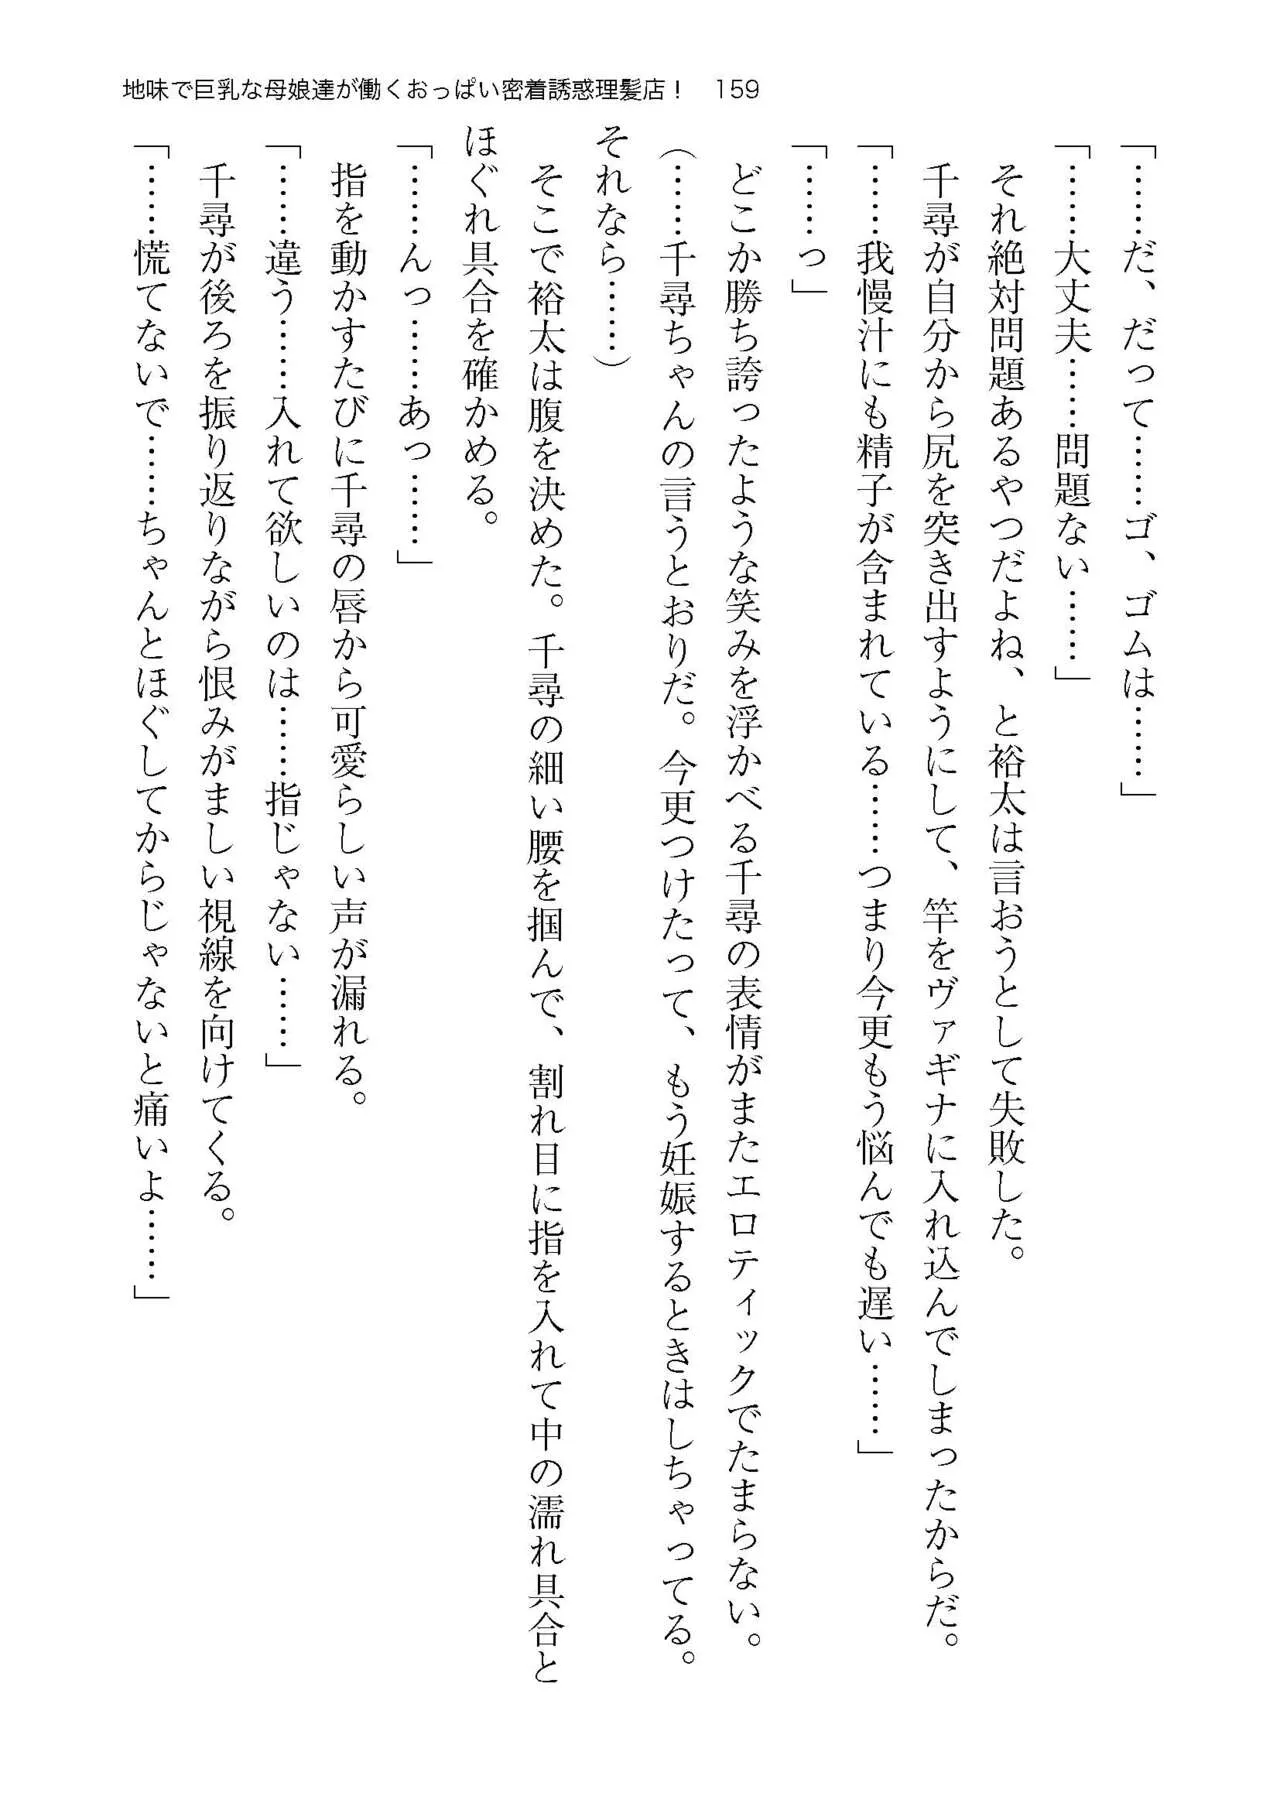 地味で巨乳な母娘達が働くおっぱい密着誘惑理髪店！　159
「……だ、だって……ゴ、ゴムは……」
「……大丈夫……問題ない……」
　それ絶対問題あるやつだよね、と裕太は言おうとして失敗した。
　千尋が自分から尻を突き出すようにして、竿をヴァギナに入れ込んでしまったからだ。
「……我慢汁にも精子が含まれている……つまり今更もう悩んでも遅い……」
「……っ」
　どこか勝ち誇ったような笑みを浮かべる千尋の表情がまたエロティックでたまらない。
（……千尋ちゃんの言うとおりだ。今更つけたって、もう妊娠するときはしちゃってる。
それなら……）
　そこで裕太は腹を決めた。千尋の細い腰を掴んで、割れ目に指を入れて中の濡れ具合と
ほぐれ具合を確かめる。
「……んっ……あっ……」
　指を動かすたびに千尋の唇から可愛らしい声が漏れる。
「……違う……入れて欲しいのは……指じゃない……」
　千尋が後ろを振り返りながら恨みがましい視線を向けてくる。
「……慌てないで……ちゃんとほぐしてからじゃないと痛いよ……」